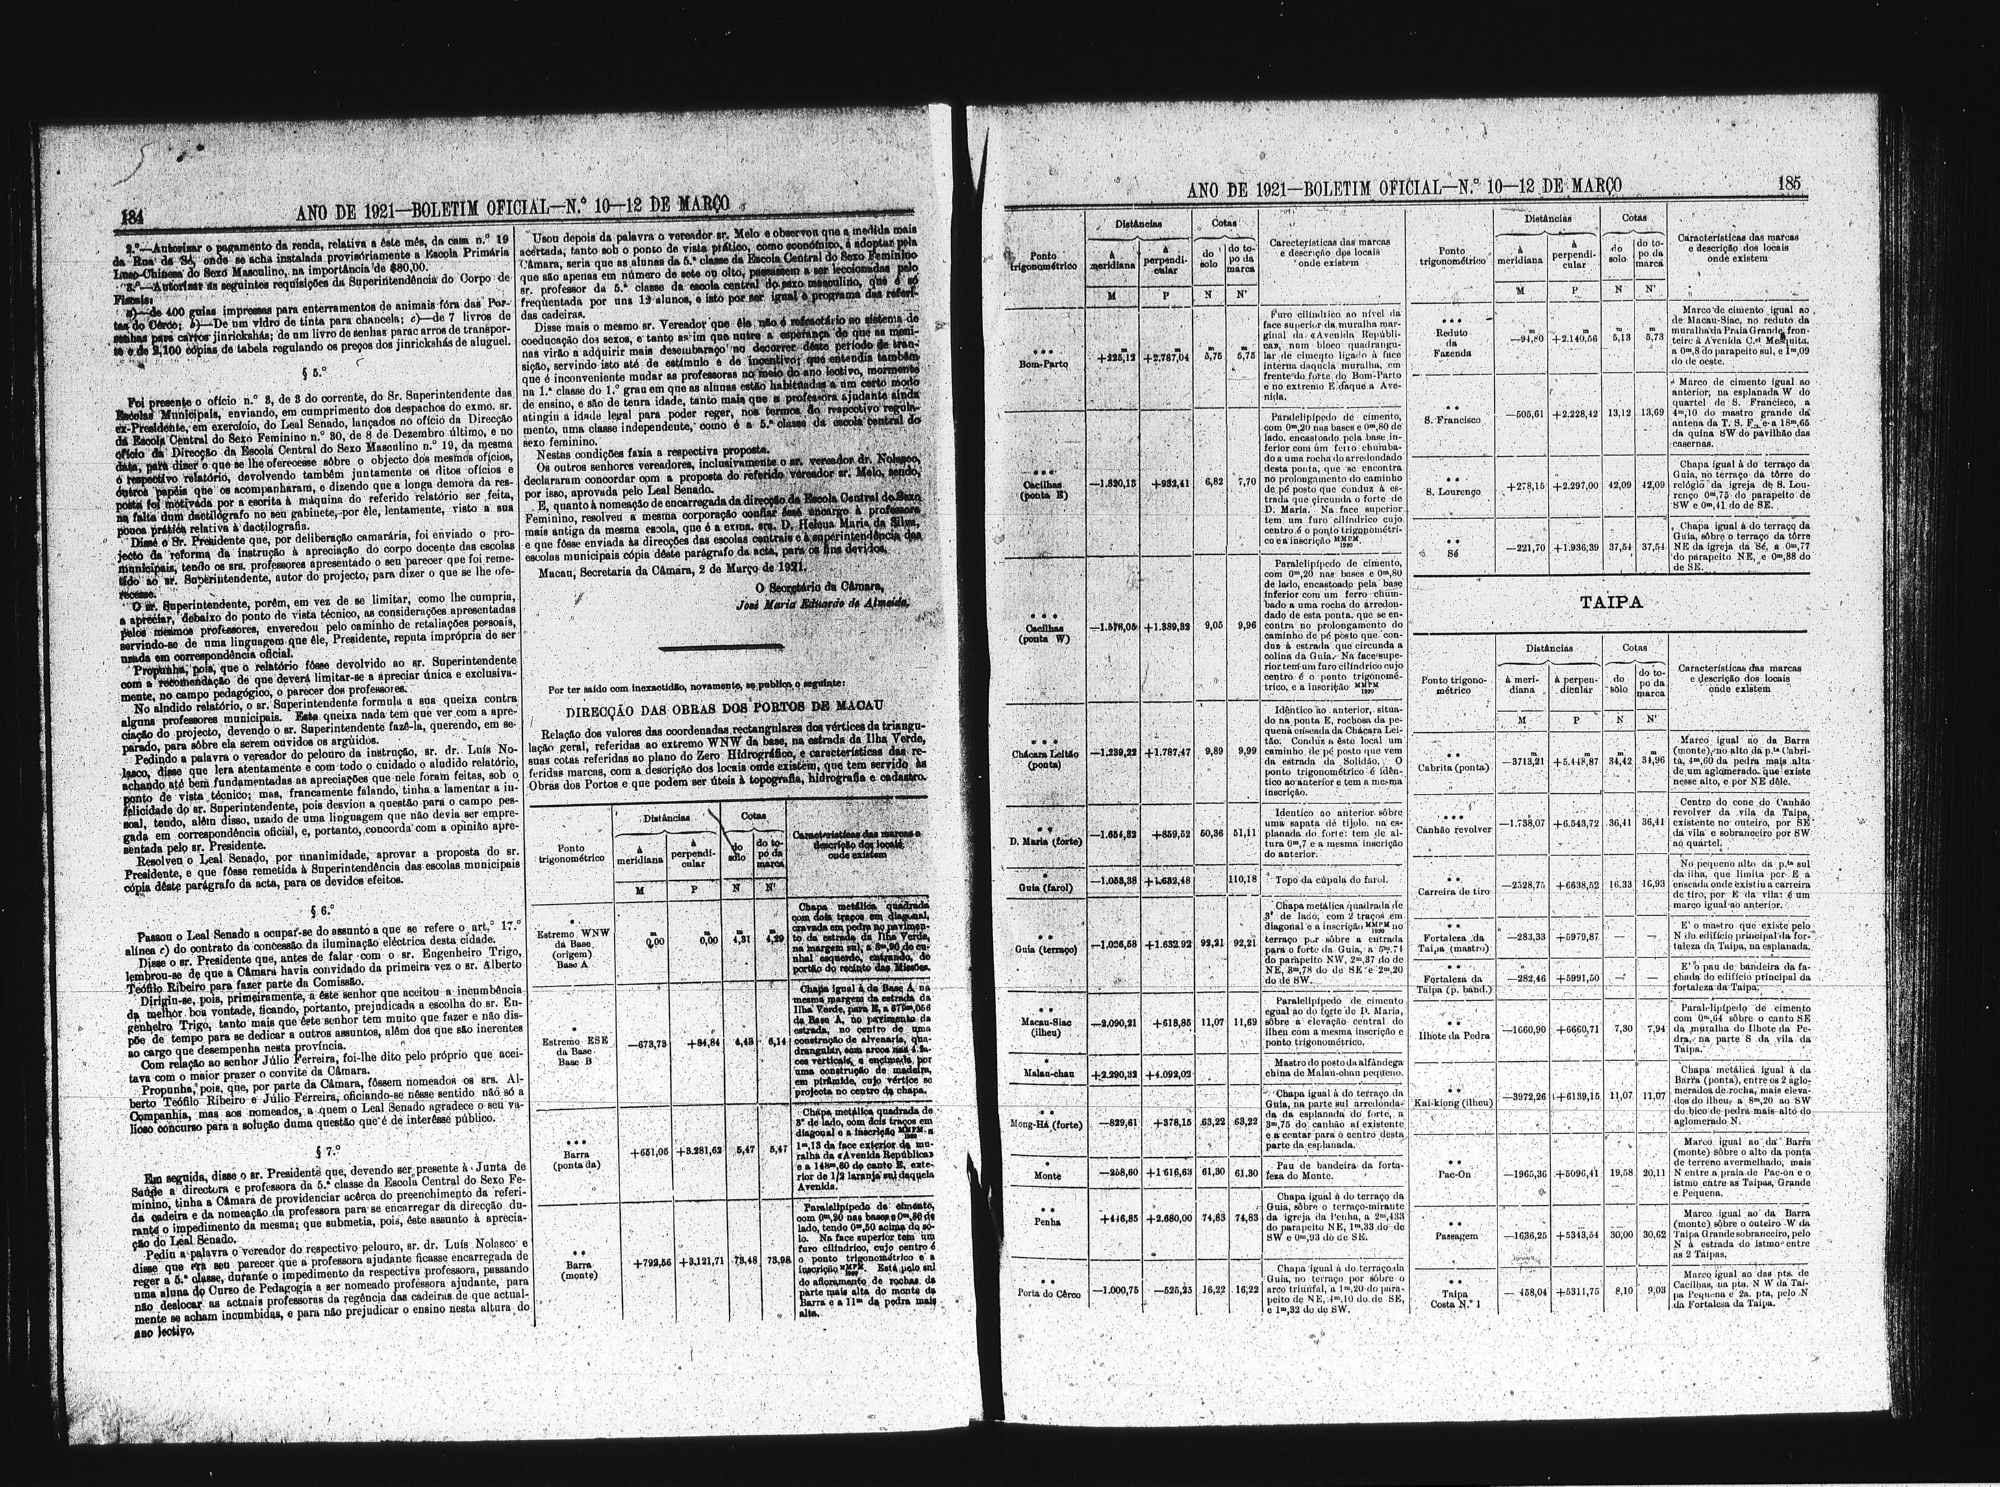 184
ANO DE 1921—BOLETIM OFICIAL—N.º 10—12 DE MARÇO
2.º—Autorizar o pagamento da renda, relativa a êste mês, da casa n.º 19
da Rua da Sé, onde se acha instalada provisóriamente a Escola Primária
Luso-Chinesa do Sexo Masculino, na importância de $80,00.
3.º—Autorizar as seguintes requisições da Superintendência do Corpo de
Fiscais:
a)—de 400 guias impressas para enterramentos de animais fóra das Por-
tas do Cêrco; b)—De um vidro de tinta para chancela; c)—de 7 livros de
senhas para carros jinrickshás; de um livro de senhas parac arros de transpor-
te e de 2,100 cópias de tabela regulando os preços dos jinrickshás de aluguel.
§ 5.º
Foi presente o ofício n.º 3, de 3 do corrente, do Sr. Superintendente das
Escolas Municipais, enviando, em cumprimento dos despachos do exmo. sr.
ex-Presidente, em exercício, do Leal Senado, lançados no ofício da Direcção
da Escola Central do Sexo Feminino n.º 30, de 8 de Dezembro último, e no
ofício da Direcção da Escola Central do Sexo Masculino n.º 19, da mesma
data, para dizer o que se lhe oferecesse sôbre o objecto dos mesmos ofícios,
o respectivo relatório, devolvendo também juntamente os ditos ofícios e
outros papéis que os acompanharam, e dizendo que a longa demora da res-
posta foi motivada por a escrita à máquina do referido relatório ser feita,
na falta dum dactilógrafo no seu gabinete, por êle, lentamente, visto a sua
pouca prática relativa à dactilografia.
Disse o Sr. Presidente que, por deliberação camarária, foi enviado o pro-
jecto da reforma da instrução à apreciação do corpo docente das escolas
municipais, tendo os srs. professores apresentado o seu parecer que foi reme-
tido ao sr. Superintendente, autor do projecto, para dizer o que se lhe ofe-
recesse.
O sr. Superintendente, porêm, em vez de se limitar, como lhe cumpria,
a apreciar, debaixo do ponto de vista técnico, as considerações apresentadas
pelos mesmos professores, enveredou pelo caminho de retaliações pessoais,
servindo-se de uma linguagem que êle, Presidente, reputa imprópria de ser
usada em correspondência oficial.
Propunha, pois, que o relatório fôsse devolvido ao sr. Superintendente
com a recomendação de que deverá limitar-se a apreciar única e exclusiva-
mente, no campo pedagógico, o parecer dos professores.
No aludido relatório, o sr. Superintendente formula a sua queixa contra
alguns professores municipais. Esta queixa nada tem que ver com a apre-
ciação do projecto, devendo o sr. Superintendente fazê-la, querendo, em se-
parado, para sôbre ela serem ouvidos os argüidos.
Pedindo a palavra o vereador do pelouro da instrução, sr. dr. Luís No-
lasco, disse que lera atentamente e com todo o cuidado o aludido relatório,
achando até bem fundamentadas as apreciações que nele foram feitas, sob o
ponto de vista técnico; mas, francamente falando, tinha a lamentar a in-
felicidade do sr. Superintendente, pois desviou a questão para o campo pes-
soal, tendo, alêm disso, usado de uma linguagem que não devia ser empre-
gada em correspondência oficial, e, portanto, concorda com a opinião apre-
sentada pelo sr. Presidente.
Resolveu o Leal Senado, por unanimidade, aprovar a proposta do sr.
Presidente, e que fôsse remetida à Superintendência das escolas municipais
cópia dêste parágrafo da acta, para os devidos efeitos.
§ 6.º
Passou o Leal Senado a ocupar-se do assunto a que se refere o art.º 17.º
alínea c) do contrato da concessão da iluminação eléctrica desta cidade.
Disse o sr. Presidente que, antes de falar com o sr. Engenheiro Trigo,
lembrou-se de que a Câmara havia convidado da primeira vez o sr. Alberto
Teófilo Ribeiro para fazer parte da Comissão.
Dirigiu-se, pois, primeiramente, a êste senhor que aceitou a incumbência
da melhor boa vontade, ficando, portanto, prejudicada a escolha do sr. En-
genheiro Trigo, tanto mais que êste senhor tem muito que fazer e não dis-
põe de tempo para se dedicar a outros assuntos, alêm dos que são inerentes
ao cargo que desempenha nesta província.
Com relação ao senhor Júlio Ferreira, foi-lhe dito pelo próprio que acei-
tava com o maior prazer o convite da Câmara.
Propunha, pois, que, por parte da Câmara, fôssem nomeados os srs. Al-
berto Teófilo Ribeiro e Júlio Ferreira, oficiando-se nêsse sentido não só a
Companhia, mas aos nomeados, a quem o Leal Senado agradece o seu va-
lioso concurso para a solução duma questão que é de interêsse público.
§ 7.º
Em seguida, disse o sr. Presidente que, devendo ser presente à Junta de
Saúde a directora e professora da 5.ª classe da Escola Central do Sexo Fe-
minino, tinha a Câmara de providenciar acêrca do preenchimento da referi-
da cadeira e da nomeação da professora para se encarregar da direcção du-
rante o impedimento da mesma; que submetia, pois, êste assunto à aprecia-
ção do Leal Senado.
Pediu a palavra o vereador do respectivo pelouro, sr. dr. Luís Nolasco e
disse que era seu parecer que a professora ajudante ficasse encarregada de
reger a 5.ª classe, durante o impedimento da respectiva professora, passando
uma aluna do Curso de Pedagogia a ser nomeado professora ajudante, para
não deslocar as actuais professoras da regência das cadeiras de que actual-
mente se acham incumbidas, e para não prejudicar o ensino nesta altura do
ano lectivo.
Usou depois da palavra o vereador sr. Melo e observou que a medida mais
acertada, tanto sob o ponto de vista prático, como económico, a adoptar pela
Câmara, seria que as alunas da 5.ª classe da Escola Central do Sexo Feminino
que são apenas em número de sete ou oito, passassem a ser leccionadas pelo
sr. professor da 5.ª classe da escola central do sexo masculino, que é só
freqüentada por uns 12 alunos, e isto por ser igual o programa das referi-
das cadeiras.
Disse mais o mesmo sr. Vereador que êle não é refractário ao sistema de
coeducação dos sexos, e tanto as im que nutre a esperança de que as meni-
nas virão a adquirir mais desembaraço no decorrer dêste período de tran-
sição, servindo isto até de estímulo e de incentivo; que entendia também
que é inconveniente mudar as professoras no meio do ano lectivo, mormente
na 1.ª classe do 1.º grau em que as alunas estão habituadas a um certo modo
de ensino, e são de tenra idade, tanto mais que a professora ajudante ainda
atingiu a idade legal para poder reger, nos termos do respectivo regula-
mento, uma classe independente, como é a 5.ª classe da escola central do
sexo feminino.
Nestas condições fazia a respectiva proposta.
Os outros senhores vereadores, inclusivamente o sr. vereador dr. Nolasco,
declararam concordar com a proposta do referido vereador sr. Melo, sendo,
por isso, aprovada pelo Leal Senado.
E, quanto à nomeação de encarregada da direcção da Escola Central do Sexo
Feminino, resolveu a mesma corporação confiar êsse encargo à professora
mais antiga da mesma escola, que é a exma. sra. D. Helena Maria da Silva,
e que fôsse enviada às direcções das escolas centrais e à superintendência das
escolas municipais cópia dêste parágrafo da acta, para os fins devidos.
Macau, Secretaria da Câmara, 2 de Março de 1921.
O Secretário da Câmara,
José Maria Eduardo de Almeida.
Por ter saído com inexactidão, novamente, se publica o seguinte:
DIRECÇÃO DAS OBRAS DOS PORTOS DE MACAU
Relação dos valores das coordenadas rectangulares dos vértices da triangu-
lação geral, referidas ao extremo WNW da base, na estrada da Ilha Verde,
suas cotas referidas ao plano do Zero Hidrográfico, e características das re-
feridas marcas, com a descrição dos locais onde existem, que tem servido às
Obras dos Portos e que podem ser úteis à topografia, hidrografia e cadastro.
Ponto trigonométrico
Distâncias
Cotas
Características das marcas e
descrição dos locais
onde existem
à meridiana
à perpendi-
cular
do solo
do to-
po da
marca
M P N N'
Estremo WNW
da Base
(origem)
Base A
0,00 0,00 4,31 4,29
Chapa metálica quadrada
com dois traços em diagonal,
cravada em pedra no pavimen-
to da estrada da Ilha Verde,
na margem sul, a 8m,90 do cu-
nhal esquerdo, entrando, do
portão do recinto das Missões.
Estremo ESE
da Base
Base B
—673,73 +84,84 4,43 6,14
Chapa igual à da Base A na
mesma margem da estrada da
Ilha Verde, para E, a 679m,056
da Base A, no pavimento da
estrada, no centro de uma
construção de alvenaria, qua-
drangular, com arcos nas 4 fa-
ces verticais, e encimada por
uma construção de madeira,
em pirâmide, cujo vértice se
projecta no centro da chapa.
Barra
(ponta da)
+651,05 +3.281,62 5,47 5,47
Chapa metálica quadrada de
3" de lado, com dois traços em
diagonal e a inscrição MMPM 1920 a
1m,13 da face exterior da mu-
ralha da «Avenida República»
e a 148m,60 do canto E, exte-
rior de 1/2 laranja sul daquela
Avenida.
Barra
(monte)
+792,56 +3.121,71 73,48 73,98
Paralelipípedo de cimento,
com 0m,20 nas bases e 0m,80 de
lado, tendo 0m,50 acima do so-
lo. Na face superior tem um
furo cilíndrico, cujo centro é
o ponto trigonométrico e a
inscrição MMPM 1920 Está pelo sul
do afloramento de rochas da
parte mais alta do monte da
Barra e a 11m da pedra mais
alta.
ANO DE 1921—BOLETIM OFICIAL—N.º 10—12 DE MARÇO
185
Ponto
trigonométrico
Distâncias
Cotas
Carecterísticas das marcas
e descrição dos locais
onde existem
à
meridiana
à
perpendi-
cular
do
solo
do to-
po da
marca
M P N N'
Bom-Parto
+225,12 +2.787,04 5,75 5,75
Furo cilíndrico ao nível da
face superior da muralha mar-
ginal da «Avenida Repúbli-
ca», num bloco quadrangu-
lar de cimento ligado à face
interna daquela muralha, em
frente do forte do Bom-Parto
e no extremo E daque a Ave-
nida.
Cacilhas
(ponta E)
—1.820,13 +932,41 6,82 7,70
Paralelipípedo de cimento,
com 0m,20 nas bases e 0m,80 de
lado, encastoado pela base in-
ferior com um ferro chumba-
do a uma rocha do arredondado
desta ponta, que se encontra
no prolongamento do caminho
de pé posto que conduz à es-
trada que circunda o forte de
D. Maria. Na face superior
tem um furo cilíndrico cujo
centro é o ponto trigonométri-
co e a inscrição MMPM 1920
Cacilhas
(ponta W)
—1.578,05 +1.389,32 9,05 9,96
Paralelipípedo de cimento,
com 0m,20 nas bases e 0m,80
de lado, encastoado pela base
inferior com um ferro chum-
bado a uma rocha do arredon-
dado de esta ponta, que se en-
contra no prolongamento do
caminho de pé posto que con-
duz à estrada que circunda a
colina da Guia. Na face supe-
rior tem um furo cilíndrico cujo
centro é o ponto trigonomé-
trico, e a inscrição MMPM 1920
Chácara Leitão
(ponta)
—1.239,22 +1.787,47 9,89 9,99
Idêntico ao anterior, situa-
do na ponta E, rochosa da pe-
quena enseada da Chácara Lei-
tão. Conduz a êste local um
caminho de pé posto que vem
da estrada da Solidão. O
ponto trigonométrico é idên-
tico ao anterior e tem a mesma
inscrição.
D. Maria (forte)
—1.654,32 +859,52 50,36 51,11
Identico ao anterior sôbre
uma sapata de tijolo, na es-
planada do forte: tem de al-
tura 0m,7 e a mesma inscrição
do anterior.
Guia (farol)
—1.053,38 +1.632,48 110,18
Topo da cúpula do farol.
Guia (terraço)
—1.036,58 +1.632,92 92,21 92,21
Chapa metálica quadrada de
3" de lado, com 2 traços em
diagonal e a inscrição MMPM 1920 no
terraço por sôbre a entrada
para o forte da Guia, a 5m,71
do parapeito NW, 2m,37 do de
NE, 3m,78 do de SE e 2m,20
do de SW.
Macau-Siac
(ilheu)
—2.090,21 +618,85 11,07 11,69
Paralelipípedo de cimento
egual ao do forte de D. Maria,
sôbre a elevação central do
ilheu com a mesma inscrição e
ponto trigonométrico.
Malau-chau
+2.290,32 +4.092,02
Mastro do posto da alfândega
china de Malau-chau pequeno.
Mong-Há (forte)
—829,61 +378,15 63,22 63,22
Chapa igual à do terraço da
Guia, na parte sul arredonda-
da da esplanada do forte, a
3m,75 do canhão aí existente
e a contar para o centro desta
parte da esplanada.
Monte
—258,60 +1.616,63 61,30 61,30
Pau de bandeira da forta-
leza do Monte.
Penha
+446,85 +2.680,00 74,83 74,83
Chapa igual à do terraço da
Guia, sôbre o terraço-mirante
da igreja da Penha, a 2m,433
do parapeito NE, 1m,33 do de
SW e 0m,93 do de SE.
Porta do Cêrco
—1.000,75 —525,25 16,22 16,22
Chapa igual à do terraço da
Guia, no terraço por sôbre o
arco triunfal, a 1m,20 do para-
peito de NE, 4m,10 do de SE,
e 1m,32 do de SW.
Ponto
trigonométrico
Distâncias
Cotas
Características das marcas
e descrição dos locais
onde existem
à
meridiana
à
perpendi-
cular
do
solo
do to-
po da
marca
M P N N'
Reduto
da
Fazenda
—94,80 +2.140,56 5,13 5,73
Marco de cimento igual ao
de Macau-Siac, no reduto da
muralha da Praia Grande, fron-
teiro à Avenida C.el Mesquita,
a 0m,8 do parapeito sul, e 1m,09
do de oeste.
S. Francisco
—505,61 +2.228,42 13,12 13,69
Marco de cimento igual ao
anterior, na esplanada W do
quartel de S. Francisco, a
4m,10 do mastro grande da
antena da T. S. F. e a 18m,65
da quina SW do pavilhão das
casernas.
S. Lourenço
+278,15 +2.297,00 42,09 42,09
Chapa igual à do terraço da
Guia, no terraço da tôrre do
relógio da igreja de S. Lou-
renço 0m,75 do parapeito de
SW e 0m,41 do de SE.
Sé
—221,70 +1.936,39 37,54 37,54
Chapa igual à do terraço da
Guia, sôbre o terraço da tôrre
NE da igreja da Sé, a 0m,77
do parapeito NE, e 0m,88 do
de SE.
TAIPA
Ponto trigono-
métrico
Distâncias
Cotas
Características das marcas
e descrição dos locais
onde existem
à meri-
diana
à perpen-
dicular
do
solo
do to-
po da
marca
M P N N'
Cabrita (ponta)
—3713,21 +5.448,87 34,42 34,96
Marco igual ao da Barra
(monte), no alto da p.ta Cabri-
ta, 4m,60 da pedra mais alta
de um aglomerado que existe
nesse alto, e por NE dêle.
Canhão revolver
—1.738,07 +6.543,72 36,41 36,41
Centro do cone do Canhão
revolver da vila da Taipa,
existente no outeiro, por SE
da vila e sobranceiro por SW
ao quartel.
Carreira de tiro
—2528,75 +6638,52 16,33 16,93
No pequeno alto da p.ta sul
da ilha, que limita por E a
enseada onde existiu a carreira
de tiro, por E da vila: é um
março igual ao anterior.
Fortaleza da
Taipa (mastro)
—283,33 +5979,87 —
E' o mastro que existe pelo
N do edifício principal da for-
taleza da Taipa, na esplanada.
Fortaleza da
Taipa (p. band.)
—282,46 +5991,50 — —
E' o pau de bandeira da fa-
chada do edifício principal da
fortaleza da Taipa.
Ilhote da Pedra
—1660,90 +6660,71 7,30 7,94
Paralelipípedo de cimento
com 0m,64 sôbre o canto SE
da muralha do Ilhote da Pe-
dra, na parte S da vila da
Taipa.
Kai-kiong (ilheu)
—3972,26 +6139,15 11,07 11,07
Chapa metálica igual à da
Barra (ponta), entre os 2 aglo-
merados de rocha, mais eleva-
dos do ilheu, a 8m,20 ao SW
do bico de pedra mais alto do
aglomerado N.
Pac-On
—1965,36 +5096,41 19,58 20,11
Marco igual ao da Barra
(monte) sôbre o alto da ponta
de terreno avermelhado, mais
N entre a praia de Pac-on e o
istmo entre as Taipas, Grande
e Pequena.
Passagem
—1636,25 +5343,54 30,00 30,62
Marco igual ao da Barra
(monte) sôbre o outeiro W da
Taipa Grande sobranceiro, pelo
N à estrada do istmo entre
as 2 Taipas.
Taipa
Costa N.º 1
—458,04 +5311,75 8,10 9,03
Marco igual ao das pts. de
Cacilhas, na pta. N W da Tai-
pa Pequena e 2a. pta, pelo N
da Fortaleza da Taipa.